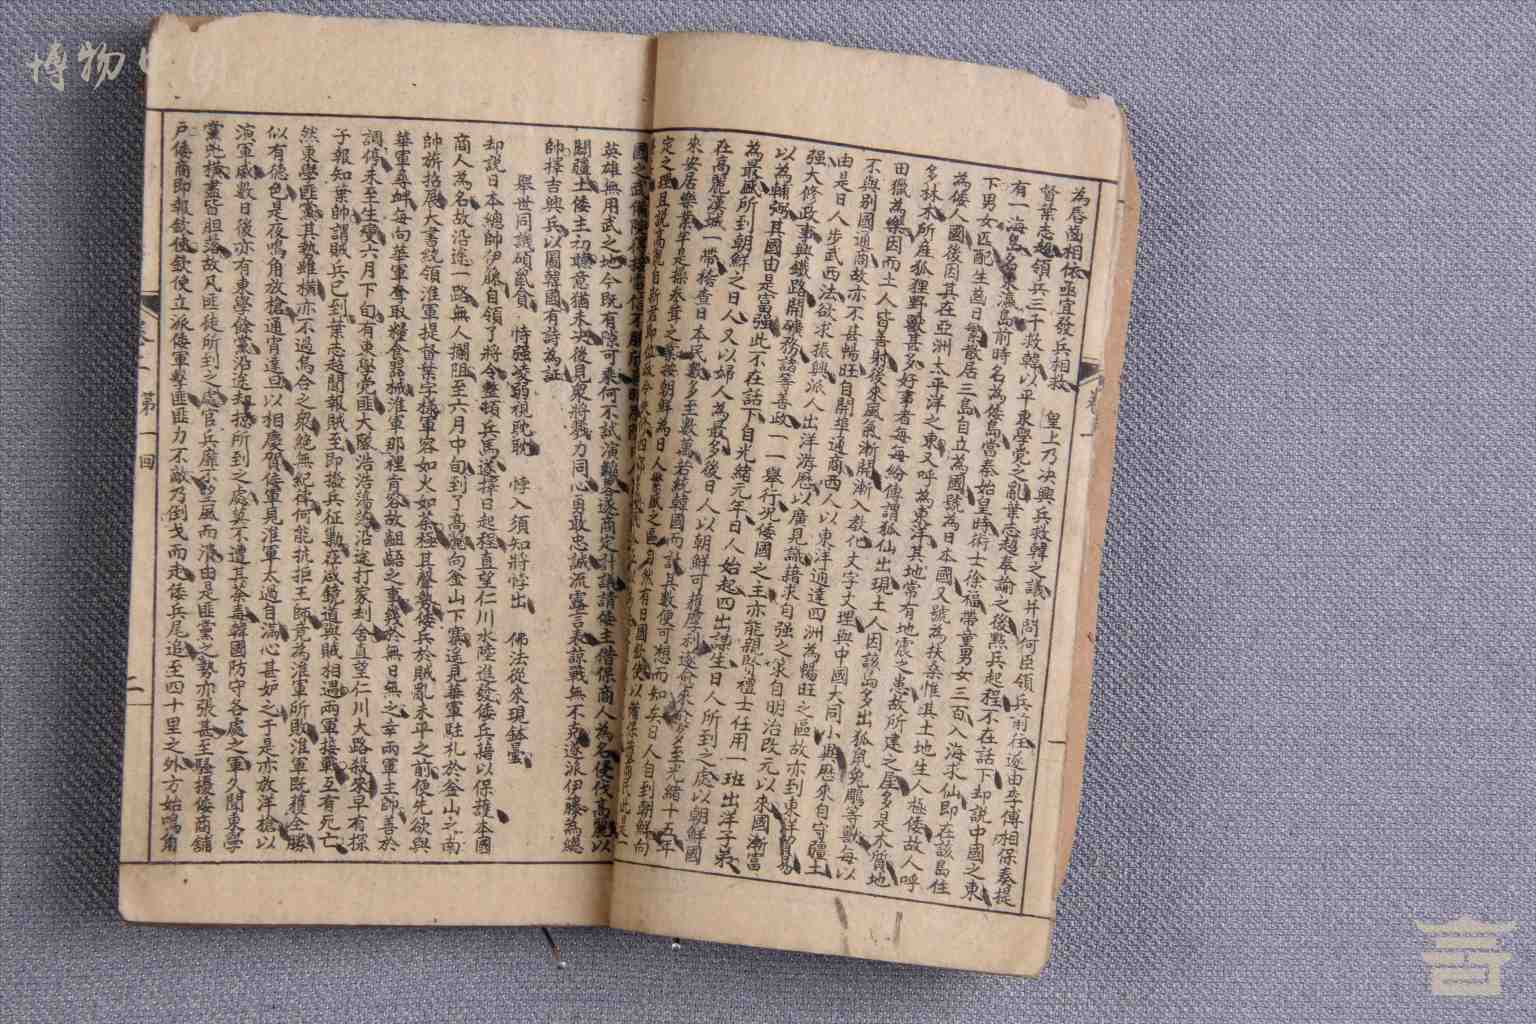 博物中国
為唇齒相依亟宜發兵相救 皇上乃决興兵救韓之議并問何臣領兵前往遂由李傅相保奏提
督葉志超領兵三千救韓以平東學党之亂葉志超奉諭之後點兵起程不在話下却說中國之東
有一海島名東瀛島前時名為倭島當秦始皇時術士徐福帶童男女三百入海求仙即在該島住
下男女匹配生齒日繁散居三島自立為國號為日本國又號為扶桑惟其土地生人極倭故人呼
為倭人國後因其在亞洲太平洋之東又呼為東洋其地常有地震之患故所建之屋多是木質地
多林木所産狐狸野獸甚多好事者每每紛傳謂狐仙出現土人因該島多出狐鼠兔鵰等獸每以
田獵為樂因而土人皆善射後來風氣漸開漸入教化文字文理與中國大同小異歷來自守疆土
不與别國通商故亦不甚暢旺自開埠通商西人以東洋通達四洲為暢旺之區故亦到東洋貿易
由是日人步武西法欲求振興派人出洋游歷以廣見識藉求自强之求自明治改元以來國漸富
强大修政事興鐵路開礦務諸等善政一一舉行况倭國之主亦能親賢禮士任用一班出洋子弟
以為輔弼其國由是富强此不在話下自光緒元年日人始起四出謀生日人所到之處以朝鮮國
為最盛所到朝鮮之日人又以婦人為最多後日人以朝鮮可權厚利遂命來多至光緒十五年
在高麗漢城一帶稽查日本民數多至數萬若統韓國而計其數便可想而知矣日人自到朝鮮向
來安居樂業半是操泰茸之業按朝鮮為日人繁盛之區自然有日國欽使以備保
定之理且說高麗自新君即位
國之武備
英雄無用武之地今既有隙可乘何不試演韜畧遂商定計謀請倭主借保商人為名侵伐高麗以
闢疆土倭主初嫌意猶未决後見衆將戮力同心勇敢忠誠流露言表諒戰無不克遂派伊藤為總
帥擇吉興兵以圖韓國有詩為証
舉世同譏碩鼠貪 恃强凌弱視眈眈 悖入須知將悖出 佛法從來現鉢曇
却說日本總帥伊藤自領了將令整頓兵馬遂擇日起程直望仁川水陸進發倭兵藉以保護本國
商人為名故沿途一路無人攔阻至六月中旬到了高麗向釜山下寨遙見華軍駐札於釜山之南
帥旂招展大書統領淮軍提督葉字樣軍容如火如荼極其聲勢倭兵於賊亂未平之前便先欲與
華軍尋衅每向華軍奪取糧食器械淮軍那裡肯容故齟齬之事幾於無日無之幸兩軍主帥善於
調停未至生變六月下旬有東學党匪大隊浩浩蕩蕩沿途打家刦舍直望仁川大路殺來早有探
子報知葉帥謂賊兵已到葉志超聞報賊至即撥兵征勦在咸鏡道與賊相遇兩軍接戰互有死亡
然東學匪黨其勢雖横亦不過烏合之衆絶無紀律何能抗拒王師竟為淮軍所敗淮軍既獲全勝
似有德色是夜鳴角放槍通宵達旦以相慶賀倭軍見淮軍太過自滿心甚妒之于是亦放洋槍以
演軍威數日後亦有東學餘黨沿途刦掠所到之處莫不遭兵荼毒韓國防守各處之軍久聞東學
黨兇横盡皆胆落故凡匪徒所到之處官兵靡不望風而潰由是匪黨之勢亦張甚至騷擾倭商舖
戶倭商即報欽使欽使立派倭軍擊匪匪力不敵乃倒戈而走倭兵尾追至四十里之外方始鳴角
第一回
二